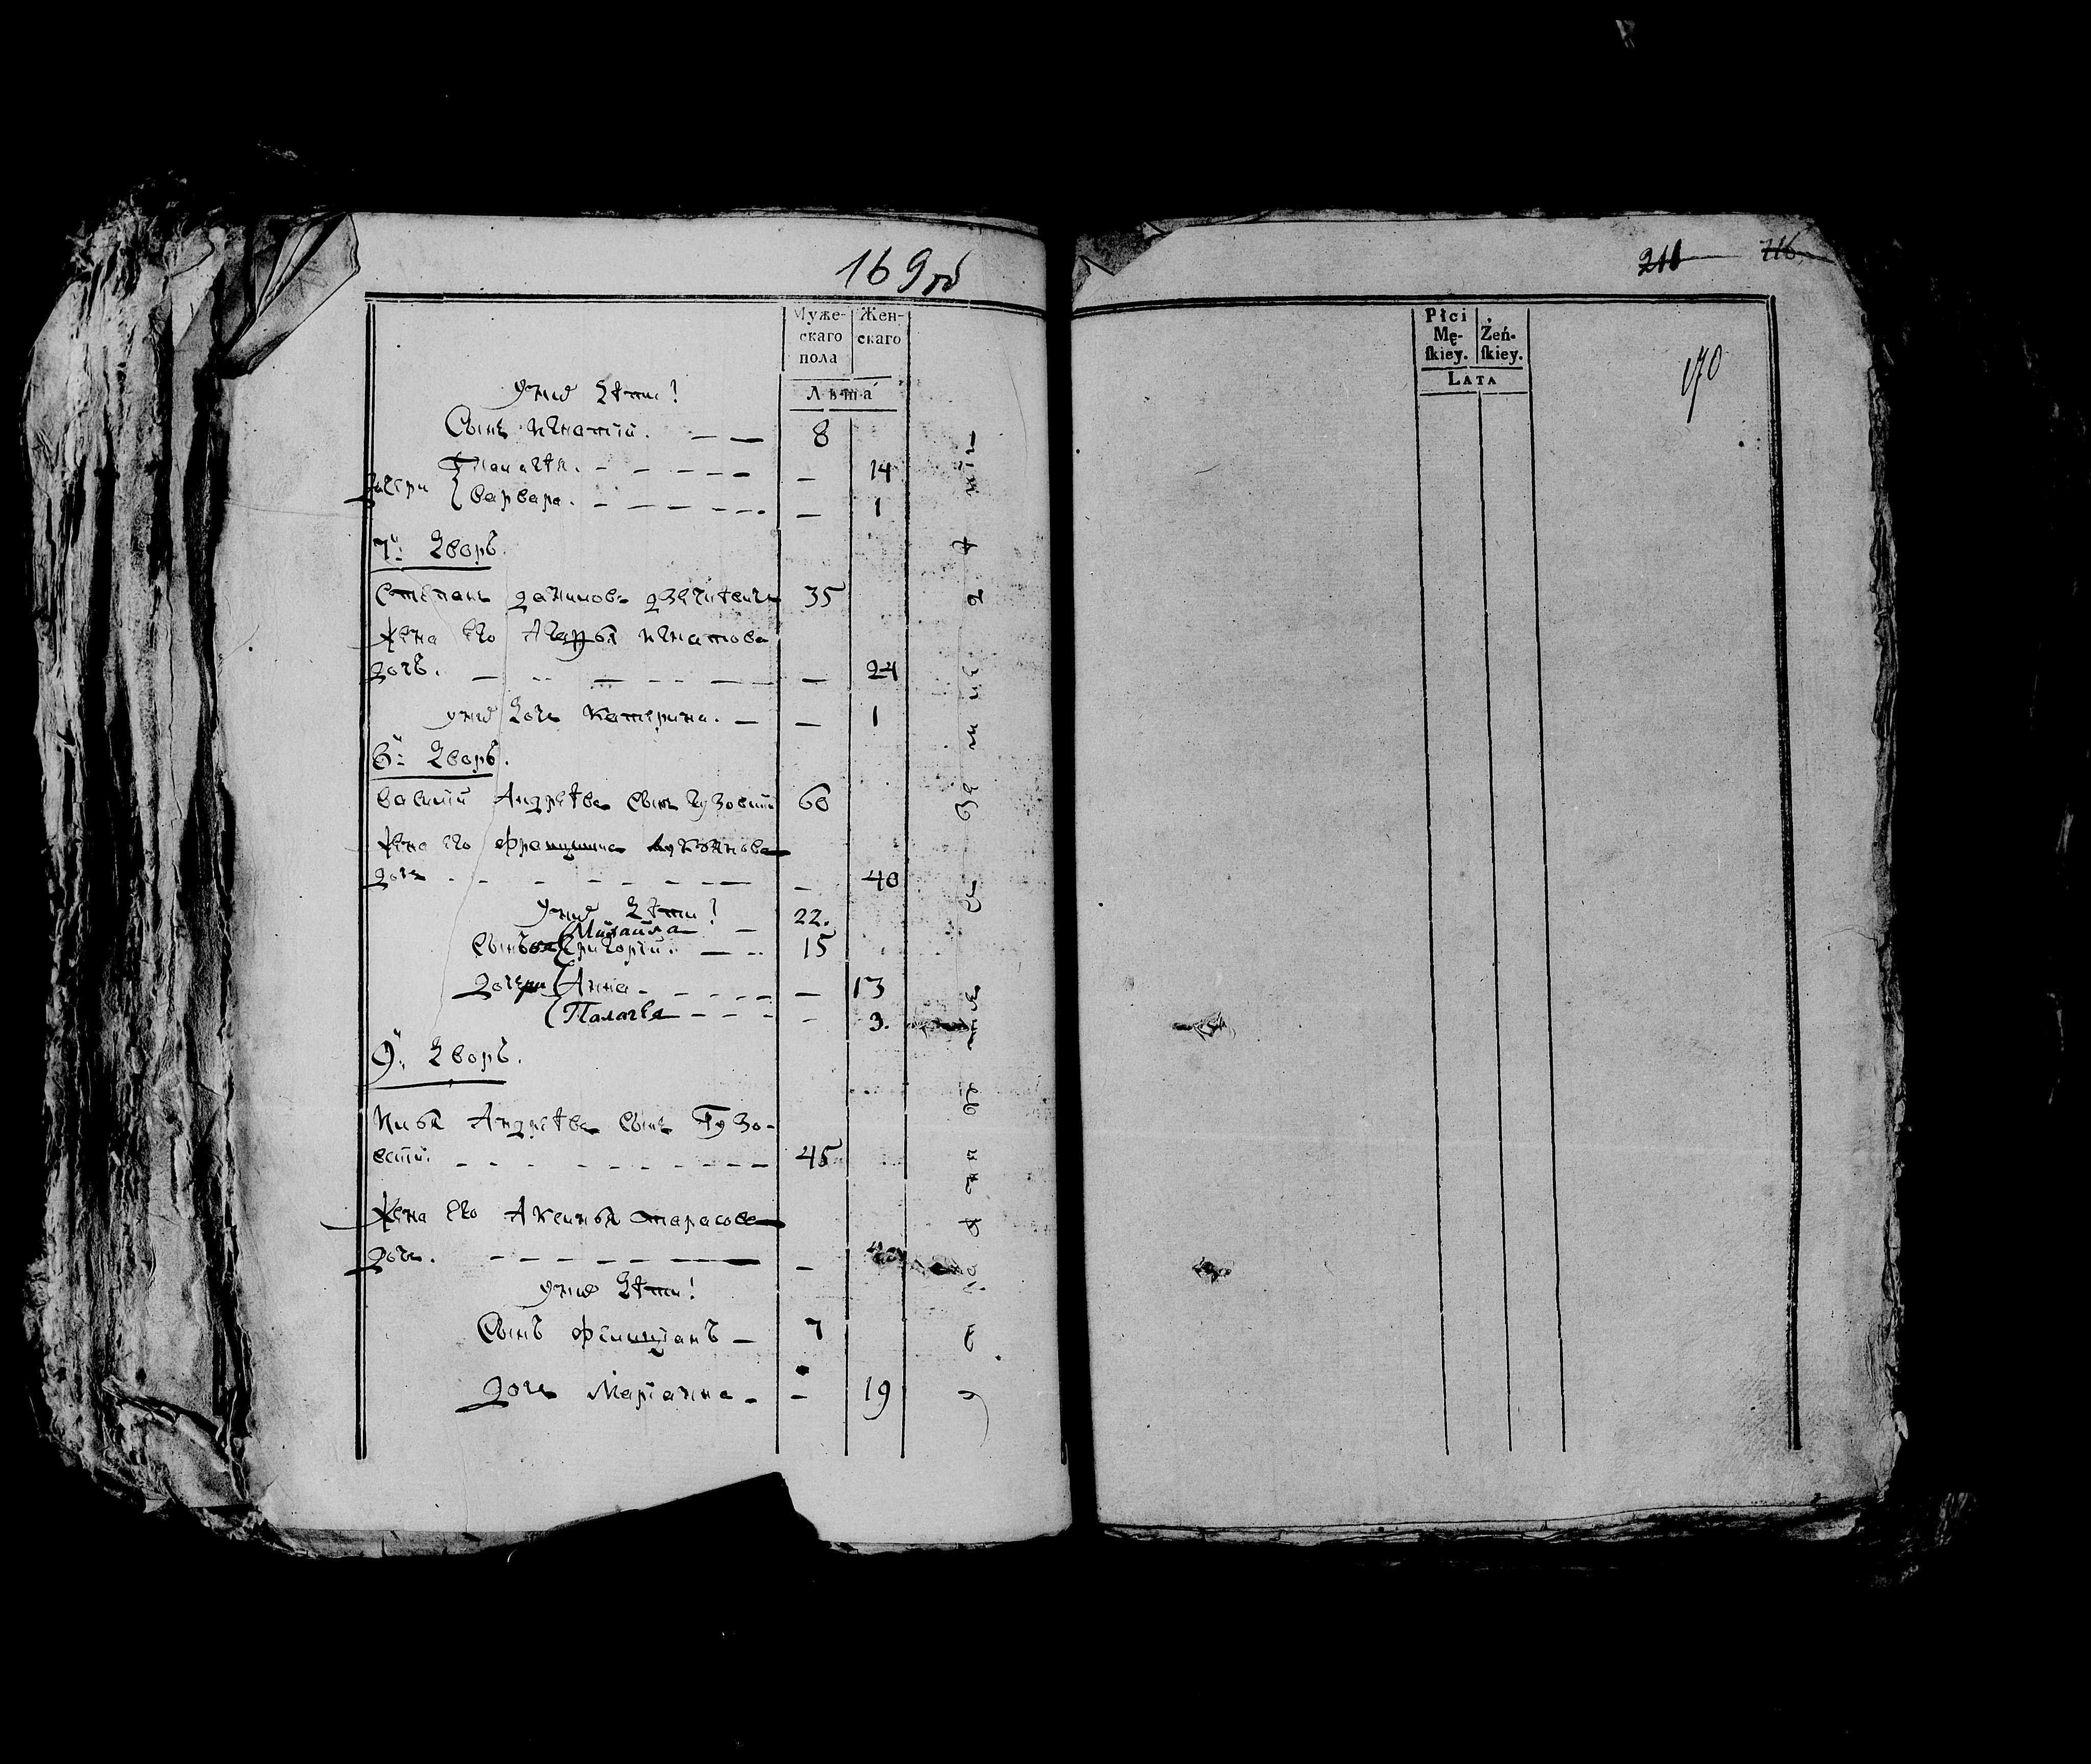 169 об
Муже-
скаго
пола
Жен-
скаго
Лѣта
У нихъ дѣти:
Сынъ Игнатій. 8
Палагѣя. 14
дочери
Варвара. 1
7й дворъ.
Степанъ 35
Жена его Агафья Игнатова
дочь. 24
у нихъ дочь Катерина. 1
8й дворъ.
Василій Андрѣевъ сынъ Гузовскій 60
Жена его Францишка Лукьянова
дочь 40
У нихъ дѣти:
Михайла 22.
Сыновья Григорій. 15
дочери Анна 13
Палагея 3.
9й дворъ.
Илья Андрѣевъ сынъ Гузо-
вскій. 45
Жена его Аксинья Тарасова
дочь. 40
у нихъ дѣти:
Сынъ Фелиціанъ 7
дочь Маріанна 19
211 716
Płci
Mę-
skiey.
Żeń-
skiey.
LATA
170